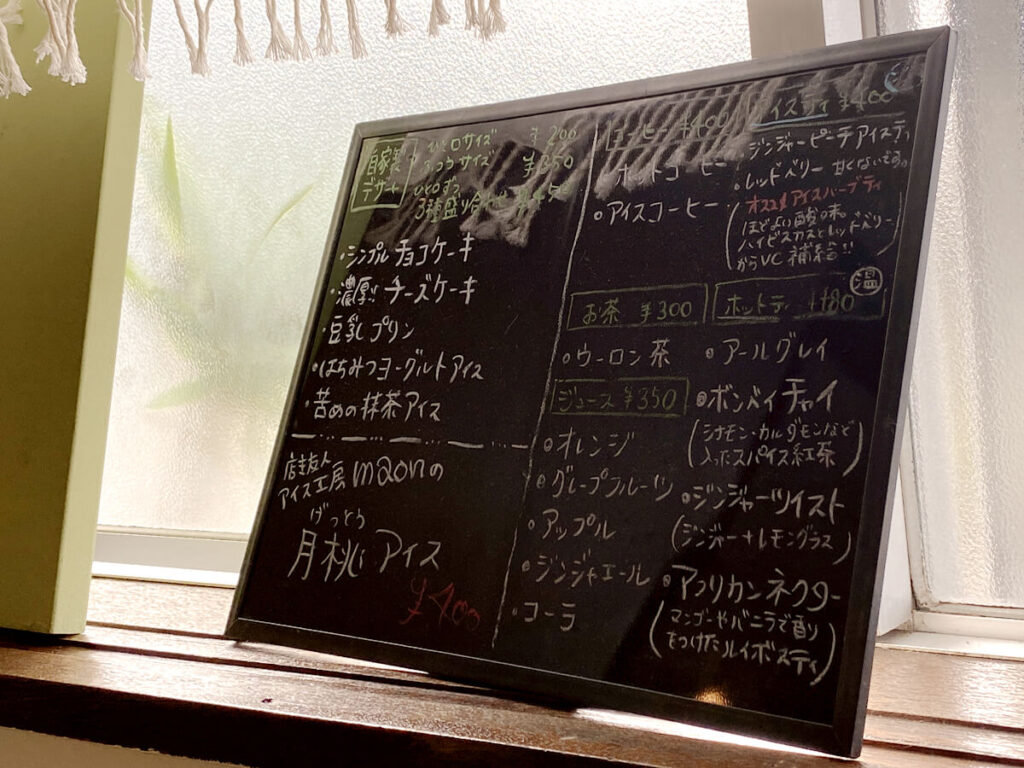 自家製
デザート
ひと口サイズ ¥200
ふつうサイズ ¥350
ひと口ずつ
3種盛り合わせ ¥450
・シンプルチョコケーキ
・濃厚!! チーズケーキ
・豆乳プリン
・はちみつヨーグルトアイス
・苦めの抹茶アイス
店主友人
アイス工房 maonの
げっとう
月桃アイス
¥400
コーヒー ¥400
ホットコーヒー
・アイスコーヒー
お茶 ¥300
・ウーロン茶
ジュース ¥350
・オレンジ
・グレープフルーツ
・アップル
・ジンジャエール
・コーラ
アイスティ ¥400
・ジンジャーピーチアイスティ
・レッドベリー 甘くないです。
オススメアイスハーブティ
(ほどよい酸味。
ハイビスカスとレッドベリー
からVC補給!!)
温
ホットティ ¥480
・アールグレイ
・ボンベイチャイ
(シナモン・カルダモンなど
入ったスパイス紅茶)
・ジンジャーツイスト
(ジンジャー+レモングラス)
・アフリカンネクター
(マンゴーやバニラで香り
をつけたルイボスティ)